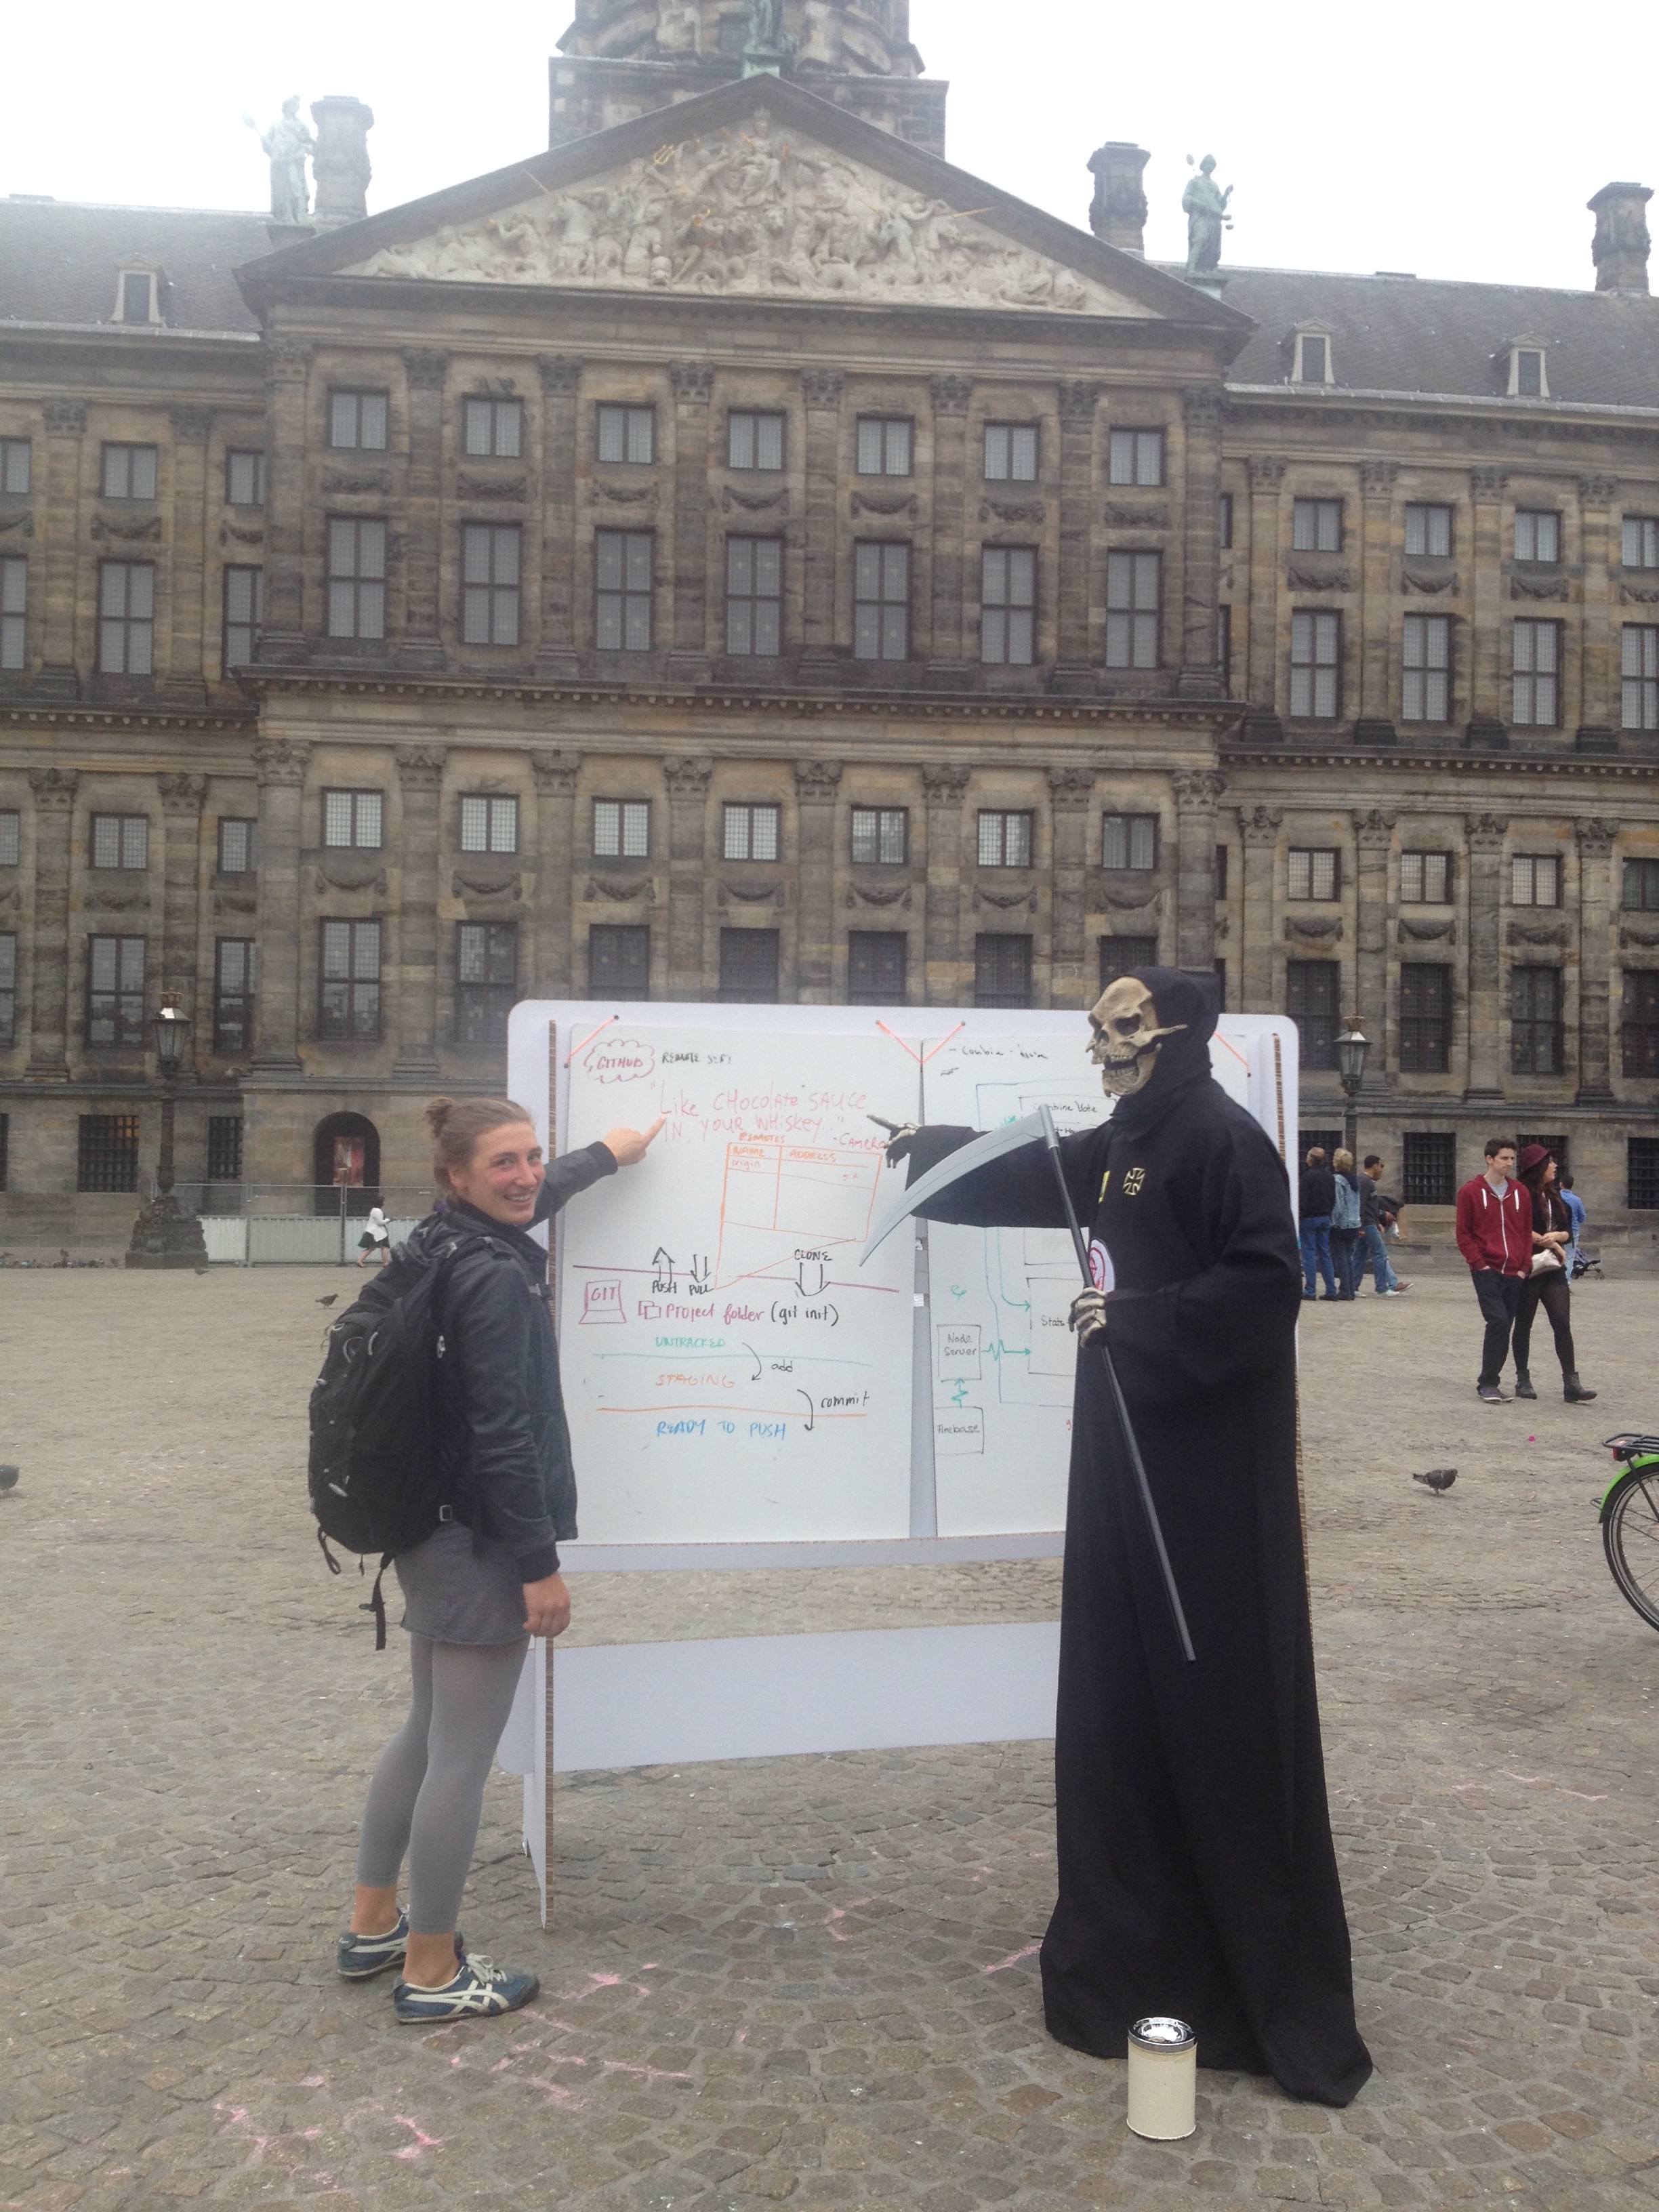 GITHUB
REMOTE
"Like CHOCOLATE SAUCE
IN YOUR WHISKEY"
REMOTES
NAME ADDRESS
origin
PUSH PULL CLONE
GIT
project folder (git init)
UNTRACKED
add
STAGING
commit
READY TO PUSH
- Combine -
Vote
State
Node
Server
Firebase